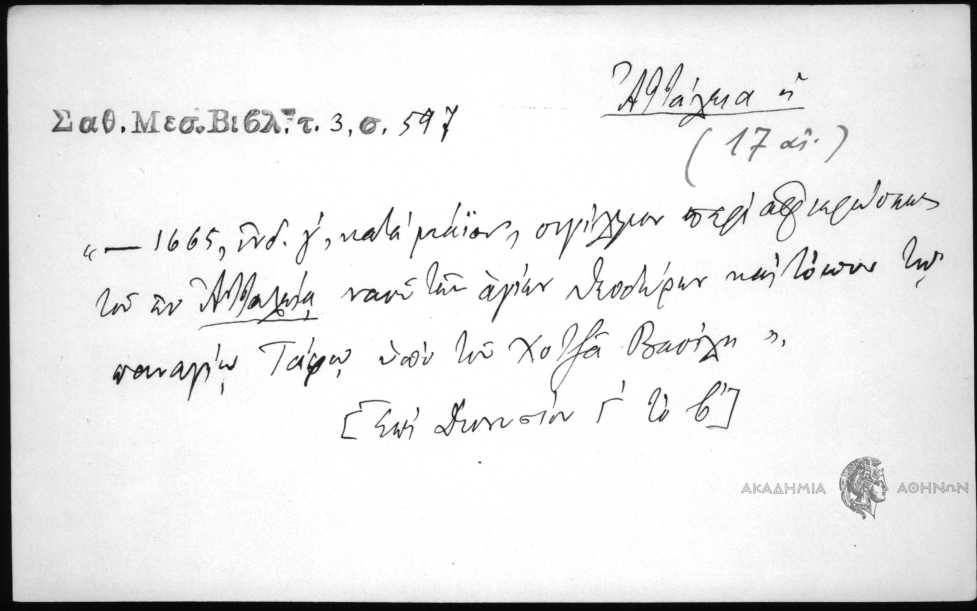 Ἀττάλεια ἡ
Σαθ. Μεσ. Βιβλ. τ. 3, σ. 597
(17 αἰ.)
"— 1665, ἰνδ. γ', κατὰ μάϊον, σιγίλλιον περὶ ἀφιερώσεως
τοῦ ἐν Ἀτταλείᾳ ναοῦ τῶν ἁγίων Θεοδώρων καὶ τόπου τῷ
παναγίῳ Τάφῳ ὑπὸ τοῦ Χοτζᾶ Βασίλη".
[Ἐπὶ Διονυσίου Γ' τὸ β']
ΑΚΑΔΗΜΙΑ ΑΘΗΝΩΝ